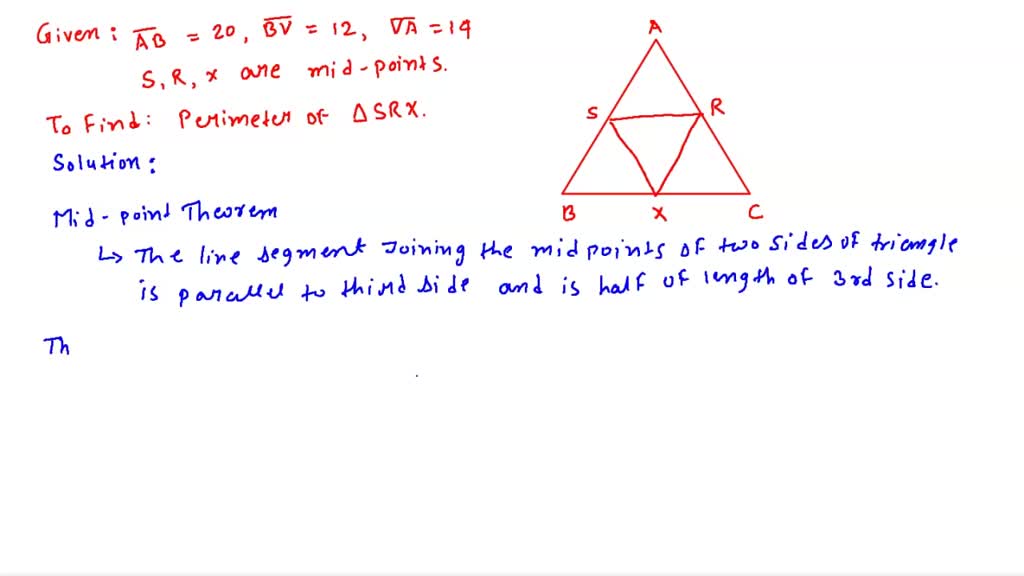 Given: AB = 20, BV = 12, VA = 14
S, R, x are mid-points.
To Find: Perimeter of ΔSRX.
Solution:
Mid-point Theorem
↳ The line segment Joining the midpoints of two sides of triangle
is parallel to third side and is half of length of 3rd side.
Th
A
S R
B X C